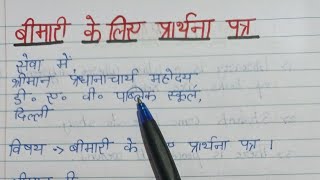 बीमारी के लिए प्रार्थना पत्र
सेवा में,
श्रीमान प्रधानाचार्य महोदय
डी॰ ए॰ वी॰ पब्लिक स्कूल,
दिल्ली
विषय -> बीमारी के प्रार्थना पत्र ।